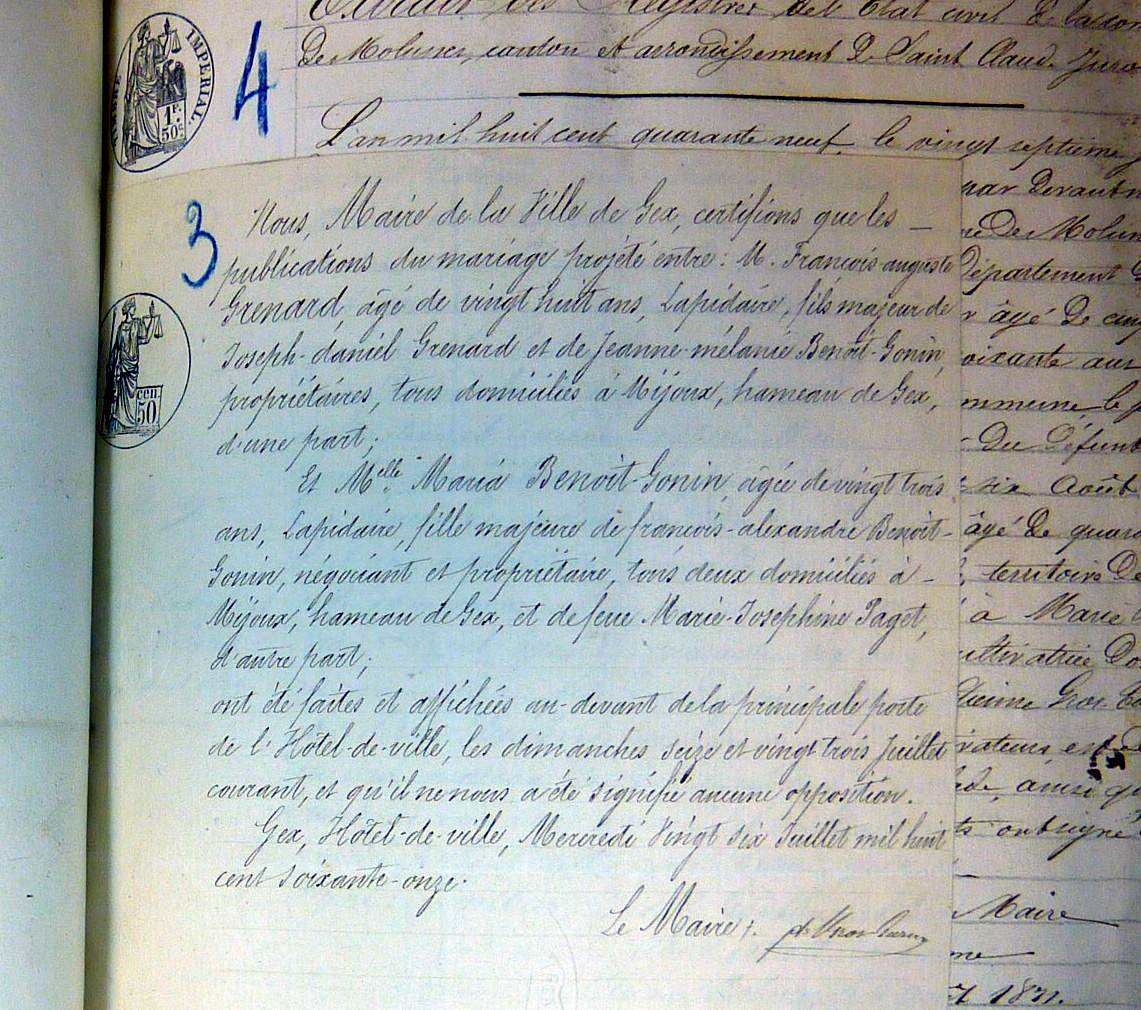 IMPERIAL
1F.
50c
4
Extrait des Registres de l'Etat civil de la
De Molunes, canton et arrondissement De Saint Claude Jura
L'an mil huit cent quarante neuf, le vingt septième
3
cen.
50
Nous, Maire de la Ville de Gex, certifions que les —
publications du mariage projeté entre: M. François-auguste
Grenard, âgé de vingt huit ans, Lapidaire, fils majeur de
Joseph-daniel Grenard et de Jeanne-mélanie Benoit-Gonin,
propriétaires, tous domiciliés à Mijoux, hameau de Gex,
d'une part;
Et Melle Maria Benoit-Gonin, âgée de vingt trois
ans, Lapidaire, fille majeure de francois-alexandre Benoit-
Gonin, négociant et propriétaire, tous deux domiciliés à —
Mijoux, hameau de Gex, et de feue Marie-Josephine Paget,
d'autre part;
ont été faites et affichées au-devant de la principale porte
de l'Hôtel-de-ville, les dimanches seize et vingt trois Juillet
courant, et qu'il ne nous a été signifié aucune opposition.
Gex, Hôtel-de-ville, Mercredi Vingt six Juillet mil huit
cent soixante-onze.
Le Maire,
par Devant
De Molun
Département
âgé De
soixante
commune, le
Du Défunt
six Août
âgé De quara
territoire De
à Marie
cultivatrice
Gros
ainsi q
ont signé
Maire
1871.